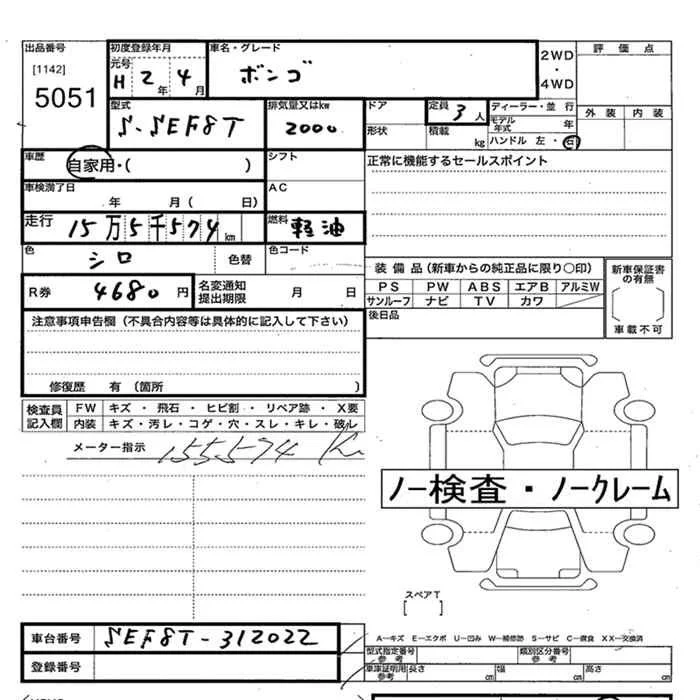 出品番号 初度登録年月 車名・グレード 2WD・4WD 評価点
[1142] 元号 H 2年 4月 ボンゴ
5051
型式 排気量又はkw ドア 定員 3人 ディーラー・並行 外装 内装
S-SEF8T 2000 形状 積載 kg モデル年式 年
ハンドル 左・右
車歴 自家用・( ) シフト 正常に機能するセールスポイント
車検満了日 年 月( 日) AC
走行 15万5千574km 燃料 軽油
色 シロ 色替 色コード
装備品(新車からの純正品に限り○印) 新車保証書の有無
R券 4680円 名変通知提出期限 月 日 PS PW ABS エアB アルミW
サンルーフ ナビ TV カワ
後日品 車載不可
注意事項申告欄(不具合内容等は具体的に記入して下さい)
修復歴 有(箇所 )
検査員記入欄 FW キズ・飛石・ヒビ割・リペア跡・X要
内装 キズ・汚レ・コゲ・穴・スレ・キレ・破レ
メーター指示 155574 Km
ノー検査・ノークレーム
スペアT
[ ]
車台番号 SEF8T-312022
A-キズ E-エクボ U-凹み W-補修跡 S-サビ C-腐食 XX-交換済
登録番号
型式指定番号 参考 類別区分番号 参考
車庫証明用 参考 長さ cm 幅 cm 高さ cm